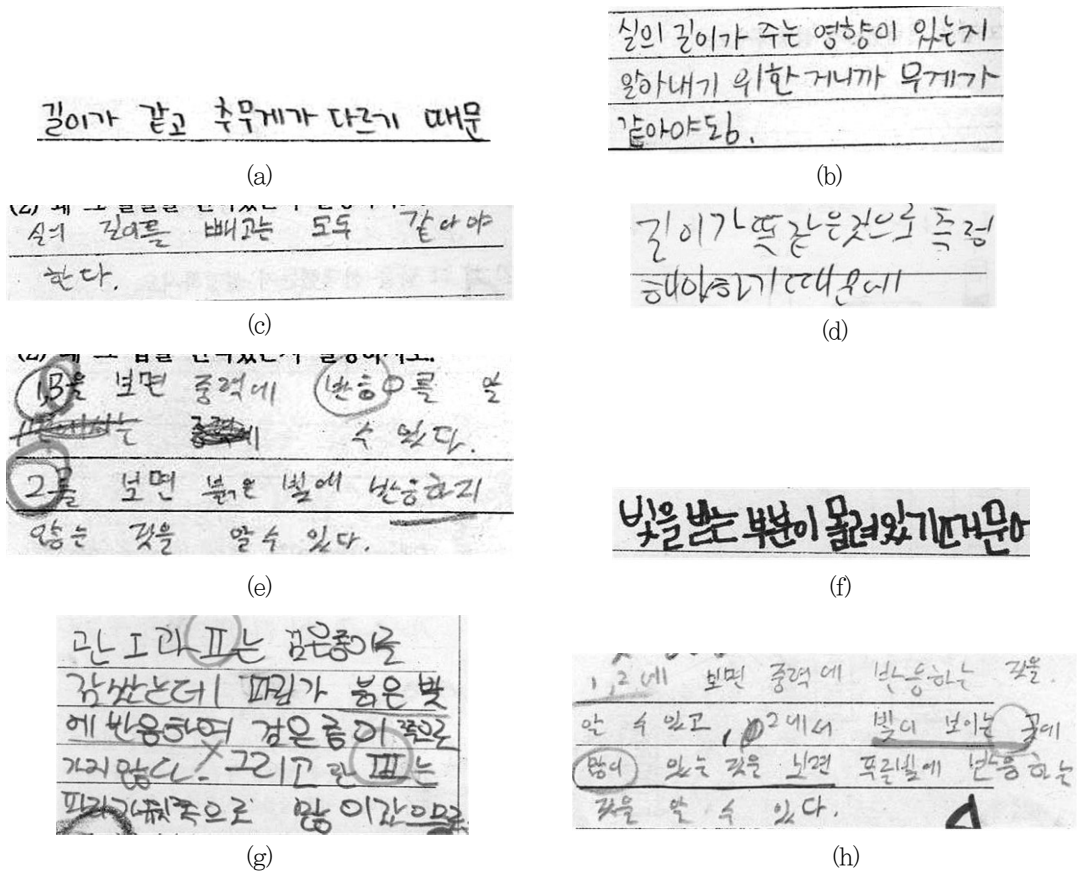 길이가 같고 추무게가 다르기 때문
(a)
실의 길이가 주는 영향이 있는지
알아내기 위한 거니까 무게가
같아야돼.
(b)
실의 길이를 빼고는 모두 같아야
한다.
(c)
길이가 똑같은것으로 측정
해야하기때문에
(d)
1,3을 보면 중력에 반응 를 알
수 있다.
2를 보면 붉은 빛에 반응하지
않는 것을 알수 있다.
(e)
빛을 받는 부분이 몰려있기때문에
(f)
관 I 과 II는 검은종이를
감쌌는데 파리가 붉은 빛
에 반응하여 검은종이 쪽으로
가지 않다. 그리고 관 III는
파리가 뒤쪽으로 많이 갔으므로
(g)
1,2에 보면 중력에 반응하는 것을.
알 수 있고, 2에서 빛이 보이는 곳에
많이 있는 것을 보면 푸른빛에 반응하는
것을 알 수 있다.
(h)